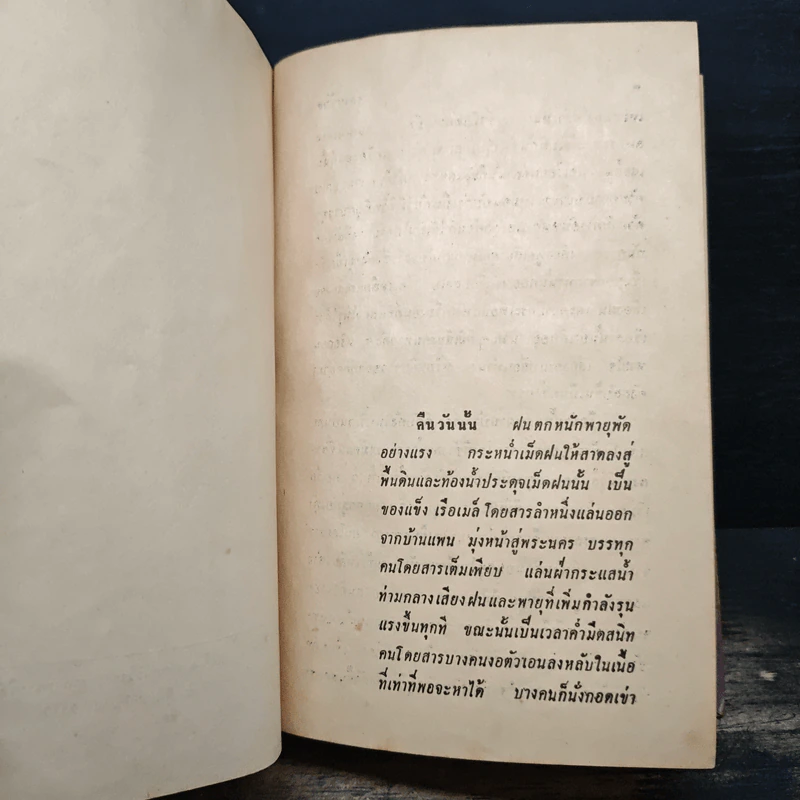 คืนวันนั้น ฝนตกหนักพายุพัด
อย่างแรง กระหน่ำเม็ดฝนให้สาดลงสู่
พื้นดินและท้องน้ำประดุจเม็ดฝนนั้น เป็น
ของแข็ง เรือเมล์โดยสารลำหนึ่งแล่นออก
จากบ้านแพน มุ่งหน้าสู่พระนคร บรรทุก
คนโดยสารเต็มเพียบ แล่นฝ่ากระแสน้ำ
ท่ามกลางเสียงฝนและพายุที่เพิ่มกำลังรุน
แรงขึ้นทุกที ขณะนั้นเป็นเวลาค่ำมืดสนิท
คนโดยสารบางคนงอตัวเอนลงหลับในเนื้อ
ที่เท่าที่พอจะหาได้ บางคนก็นั่งกอดเข่า